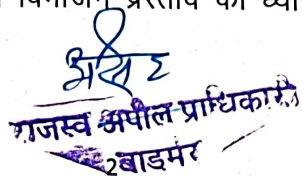 विभाजन प्रस्ताव का
राजस्व अपील प्राधिकारी
बाड़मेर